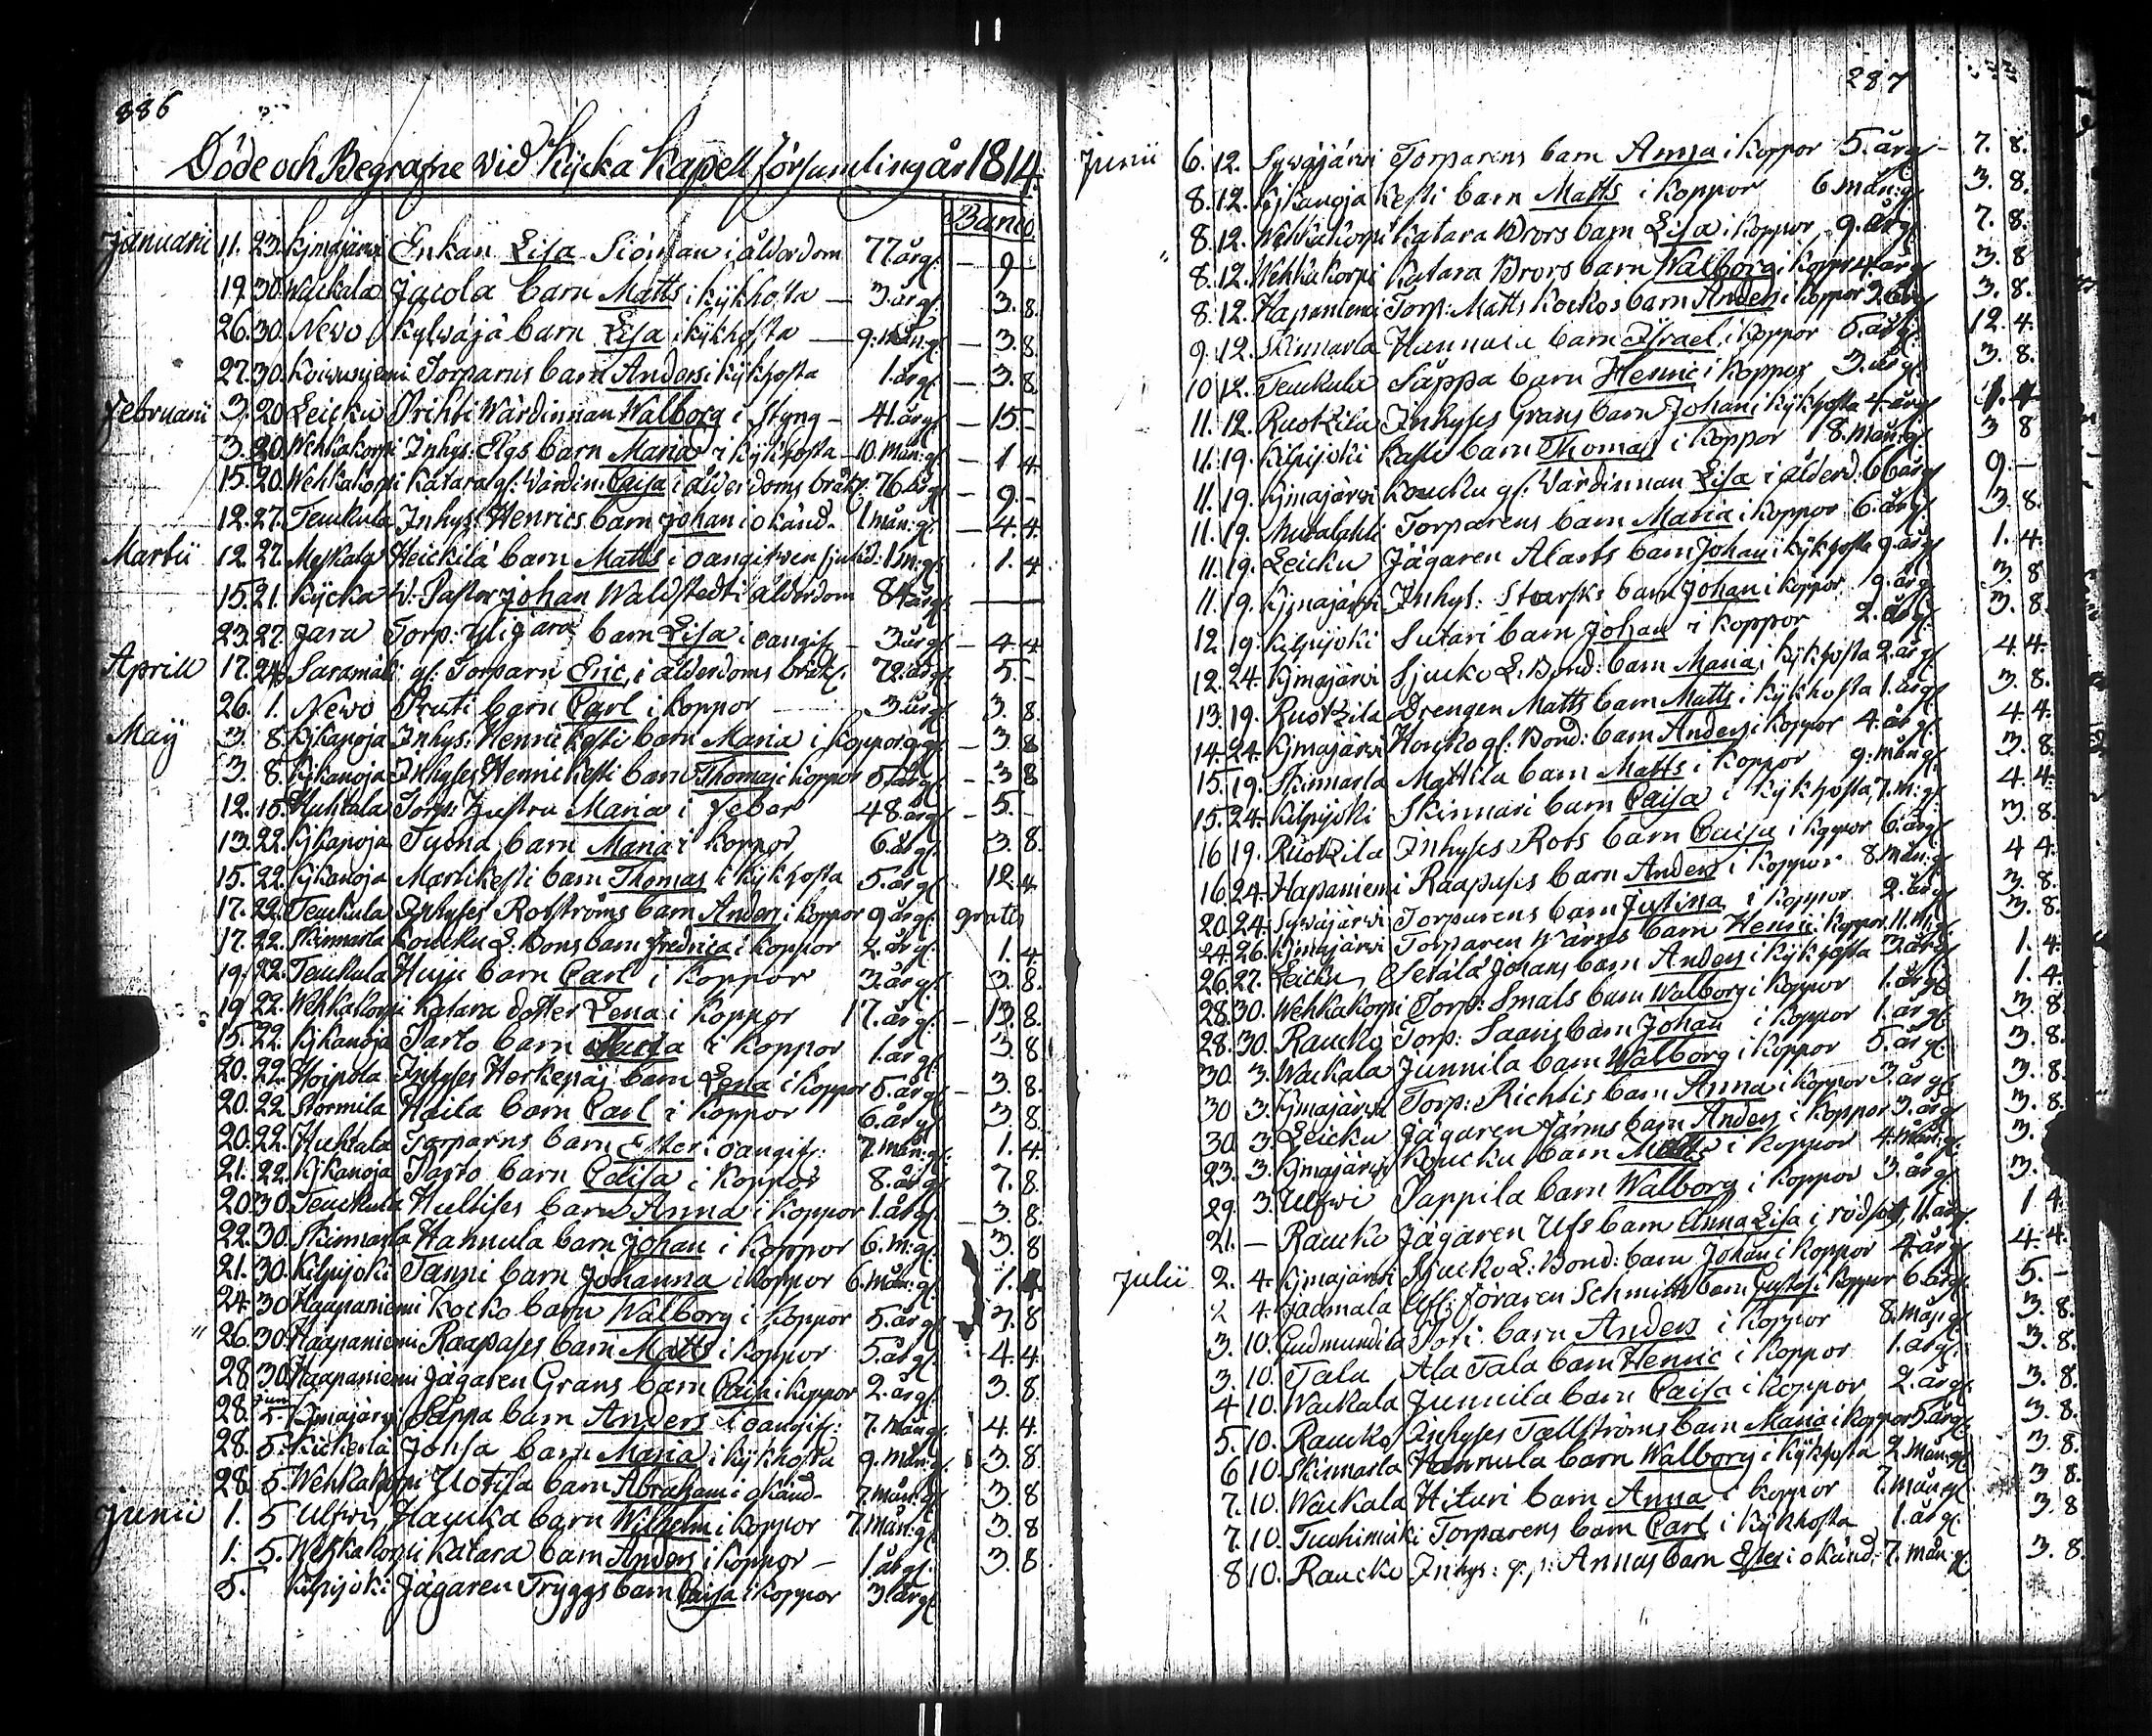 886
Döde och Begrafne vid Kycka Kapell församling år 1814.
Banco
Januarii 11. 23. Kjmajärwi Enkan Lisa Siöman i ålderdom 77 år gl. — 9 —
19. 30. Wackala Jacola barn Matts i kikhosta — 3. år gl. 3. 8.
26. 30. Newo Kylwäjä barn Lisa i kikhosta — 9. mån: gl. — 3. 8.
27. 30. Torparns barn Anders i kikhosta 1. år gl. — 3. 8.
Februarii 3. 20 Leicku Prihti Wärdinnan Walborg i Styng — 41. år gl. — 15. —
3. 20. Wehkakorpi Inhys: Elgs barn Maria i kikhosta — 10. mån: gl. — 1 4.
15. 20. Wehkakorpi Katara gl: Wärdin: Caisa i ålderdoms bräkl. 76 år gl. — 9. —
12. 27. Teuckula Inhys: Henrics barn Johan i okänd. 1 mån: gl. — 4. 4.
Martii 12. 27. Meskala Heickilä barn Matts i oangifwen sjukd: 1 m: gl. 1. 4
15. 21. Kycka V: Pastor Johan Waldstedt i ålderdom 84 år gl. —
23. 27. Jara Torp: Ylijara barn Lisa i oangif. — 3. år gl. — 4 4
Aprill 17. 24. Saramäki gl: Torparn Eric, i ålderdoms bräkl. 72. år gl. 5. —
26. 1. Newo Pruti barn Carl i koppor 3. år gl. 3. 8.
Maij 3. 8. Kjkanoja Inhys: Henric Kesti barn Maria i koppor — 3. 8
3. 8. Kjkanoja Inhyses Henric Kesti barn Thomas i koppor 5 år gl. — 3 8
12. 15. Huhtala Torp: hustru Maria i feber 48. år gl. — 5. —
13. 22. Kjkanoja Tuona barn Maria i koppor 6. år gl. 3. 8.
15. 22. Kjkanoja Marti Kesti barn Thomas i kikhosta 5. år gl. 12. 4
17. 22. Teuckula Inhyses Roströms barn Anders i koppor 9 år gl. gratis
17. 22. Skinnarla Koucku L: Bons barn Fredrica i koppor 2. år gl. 1. 4
19. 22. Teuckula Huju barn Carl i koppor 3. år gl. 3. 8.
19 22. Wehkakorpi Katara dotter Lena i koppor 17. år gl. — 13. 8.
15. 22. Kjkanoja Parto barn i koppor 1. år gl. 3. 8
20. 22. Hoipola Inhyses Herkepäj barn Lena i koppor 5. år gl. — 3. 8.
20. 22 Stormila Haila barn Carl i koppor 6. år gl. 3. 8.
20. 22. Huhtala Torparns barn Ester i oangif: 7. mån: gl. 1. 4.
21. 22. Kjkanoja Parto barn Caisa i koppor 8. år gl. 7. 8.
20 30. Teuckula Hultises barn Anna i koppor 1. år gl. — 3. 8.
22. 30. Skinnarla Hannula barn Johan i koppor 6. m: gl. 3. 8
21. 30. Kilpijoki Tanni barn Johanna i koppor 6. mån: gl. 1. 4
24. 30 Haapaniemi Kocko barn Walborg i koppor 5. år gl. 7. 8
26. 30. Haapaniemi Raapases barn Matts i koppor 5. år gl. 4. 4
28. 30. Haapaniemi Jägaren Grans barn Caisa i koppor 2. år gl. 3. 8.
28. Juni 5. Kjmajärwi Säppa barn Anders i oangif: 7. mån gl. 4 4.
28. 5. Johsa barn Maria i kikhosta 9. mån: gl. 3. 8.
28. 5. Wehkakorpi Uotila barn Abraham i okänd. 7. mån: gl. 3. 8
Junii 1. 5 Ulfwis Haucka barn Wilhelm i koppor 7. mån: gl. 3. 8
1. 5. Wehkakorpi Katara barn Anders i koppor — 1. år gl. 3. 8
5. Kilpijoki Jägaren Tryggs barn Caisa i koppor 3. år gl.
287
Junii 6. 12. Sywäjärwi Torparens barn Anna i koppor 5. år gl — 7. 8.
8. 12. Kjkanoja Kesti barn Matts i koppor 6 mån: gl. 3. 8.
8. 12. Wehkakorpi Katara Brors barn Lisa i koppor 9. år gl. 7. 8.
8. 12. Wehkakorpi Katara Brors barn Walborg i koppor 4 år gl. 3. 8
8. 12. Hapaniemi Torp: Matts Kockos barn Anders i koppor 3. år gl 3. 8.
9. 12. Skinnarla Hannula barn Israel i koppor 5. år gl. 12. 4.
10 12. Teuckula Säppa barn Henric i koppor 3. år gl. 3. 8.
11. 12. Ruokila Inhyses Grans barn Johan i kikhosta 4. år gl 1. 4
11. 19. Kilpijoki barn Thomas i koppor 8. mån: gl. 3 8
11. 19. Kjmajärwi Koucku gl: Wärdinnan Lisa i ålderd: 66 år gl 9. —
11. 19. Muralahti Torparens barn Maria i koppor 6. år gl. 3. 8.
11. 19. Leicku Jägaren Alarts barn Johan i kikhosta 9. år gl. 1. 4.
11. 19. Kjmajärwi Inhys: Starks barn Johan i koppor 9. år gl. 3. 8
12. 19. Kilpijoki Sutari barn Johan i koppor 2. år gl. 3. 8.
12. 24. Kjmajärwi Sjucko L: Bond: barn Maria i kikhosta 2. år gl. 4. 4.
13. 19. Ruokila Drengen Matts barn Matts i kikhosta 1. år gl. 3. 8.
14. 24. Kjmajärwi Houko gl: Bond: barn Anders i koppor 4. år gl. 4. 4.
15. 19. Skinnarla Mattila barn Matts i koppor 9. mån gl. 3. 8.
15. 24. Kilpijoki Skinnari barn Caisa i kikhosta, 7. m: gl. 4. 4.
16 19. Ruokila Inhyses Rots barn Caisa i koppor 6. år gl. 3. 8.
16. 24. Hapaniemi Raapases barn Anders i koppor 8. mån: gl. 4 4.
20 24. Sywäjärwi Torparens barn Justina i koppor 2. år gl 3. 8.
24. 26. Kjmajärwi Torparen Wärms barn Henric i koppor 11. m: gl. 3. 8.
26. 27. Leicku Setälä Johans barn Anders i kikhosta 3. år gl 1. 4
28. 30. Wehkakorpi Torp: Smals barn Walborg i koppor 1. år gl. 1. 4.
28. 30. Raucko Torp: Saaris barn Johan i koppor 1. år gl. 3. 8
30. 3. Wackala Junnila barn Walborg i koppor 5. år gl. 3. 8.
30 3. Kjmajärwi Torp: Richtis barn Anna i koppor 3. år gl. 3. 8.
30 3. Leicku Jägaren Järns barn Anders i koppor 3. år gl 3. 8.
23. 3. Kjmajärwi Koucku barn Matts i koppor 4. mån: gl. 3.
29. 3. Ulfwi Pappila barn Walborg i koppor 3. år gl. 3.
21. — Raucko Jägaren Ufs barn Anna Lisa i rödsot, 11. år gl. 1 4.
Julii 2. 4. Kjmajärwi Sjucko L: Bond: barn Johan i koppor 4. år gl 4. 4.
2 4. Schmidts barn Gustaf i koppor 6. år gl. 5. —
3. 10. Gudmundila barn Anders i koppor 8. mån gl. 3. 8.
3. 10. Tala Ala Tala barn Henric i koppor 1. år gl. 3. 8.
4 10. Wackala Junnila barn Caisa i koppor 2. år gl. 3. 8.
5. 10. Raucko Inhyses Tallströms barn Maria i koppor 5. år gl 3. 8.
6 10. Skinnarla Hannula barn Walborg i kikhosta 2 mån: gl. 3. 8.
7. 10. Wackala Hituri barn Anna i koppor 7. mån gl. 3 8.
7. 10. Tuohimäki Torparens barn Carl i kikhosta 1. år gl. 3. 8
8 10. Raucko Inhys: Annas barn Ester i okänd. 7. mån: gl. 3. 8.